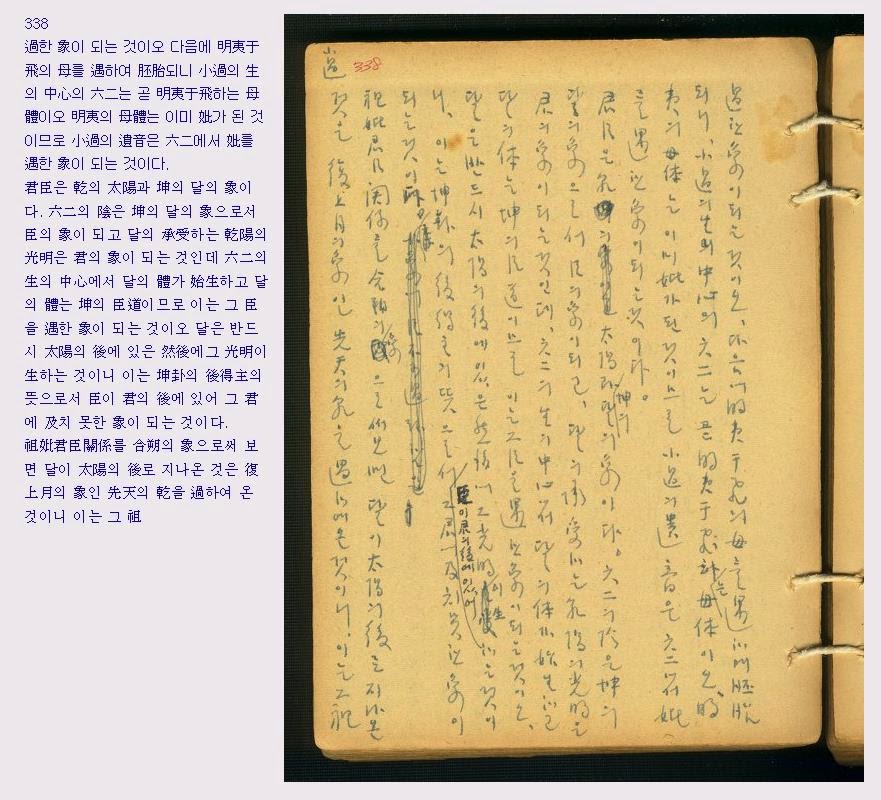 338
過한 象이 되는 것이오 다음에 明夷于
飛의 母를 遇하여 胚胎되니 小過의 生
의 中心의 六二는 곧 明夷于飛하는 母
體이오 明夷의 母體는 이미 妣가 된 것
이므로 小過의 遺音은 六二에서 妣를
遇한 象이 되는 것이다.
君臣은 乾의 太陽과 坤의 달의 象이
다. 六二의 陰은 坤의 달의 象으로서
臣의 象이 되고 달의 承受하는 乾陽의
光明은 君의 象이 되는 것인데 六二의
生의 中心에서 달의 體가 始生하고 달
의 體는 坤의 臣道이므로 이는 그 臣
을 遇한 象이 되는 것이오 달은 반드
시 太陽의 後에 있은 然後에그 光明이
生하는 것이니 이는 坤卦의 後得主의
뜻으로서 臣이 君의 後에 있어 그 君
에 及치 못한 象이 되는 것이다.
祖妣君臣關係를 合朔의 象으로써 보
면 달이 太陽의 後로 지나온 것은 復
上月의 象인 先天의 乾을 過하여 온
것이니 이는 그 祖
小過
338
過한 象이 되는 것이오, 다음에 明夷于飛의 母를 遇하여 胚胎
되니, 小過의 生의 中心의 六二는 곧 明夷于飛하는 母体이오, 明
夷의 母体는 이미 妣가 된 것이므로 小過의 遺音은 六二에서 妣
를 遇한 象이 되는 것이다。
君臣은 乾의 太陽과 坤의 달의 象이다。 六二의 陰은 坤의
달의 象으로서 臣의 象이 되고, 달의 承受하는 乾陽의 光明은
君의 象이 되는 것인데, 六二의 生의 中心에서 달의 体가 始生하고
달의 体는 坤의 臣道이므로 이는 그 臣을 遇한 象이 되는 것이오,
달은 반드시 太陽의 後에 있은 然後에 그 光明이 生하는 것이
니, 이는 坤卦의 後得主의 뜻으로서 臣이 君의 後에 있어 그 君에 及치 못한 象이
되는 것이다。
祖妣君臣關係를 合朔의 象으로써 보면 달이 太陽의 後로 지나온
것은 復上月의 象인 先天의 乾을 過하여 온 것이니, 이는 그 祖